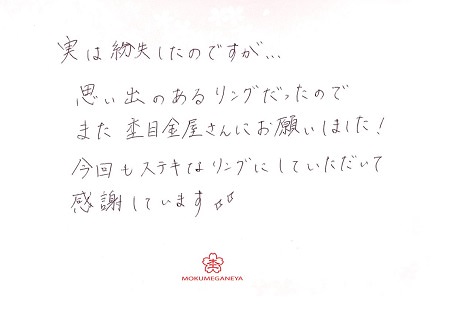 実は紛失したのですが…
思い出のあるリングだったので
また杢目金屋さんにお願いしました!
今回もステキなリングにしていただいて
感謝しています♡♡
MOKUMEGANEYA